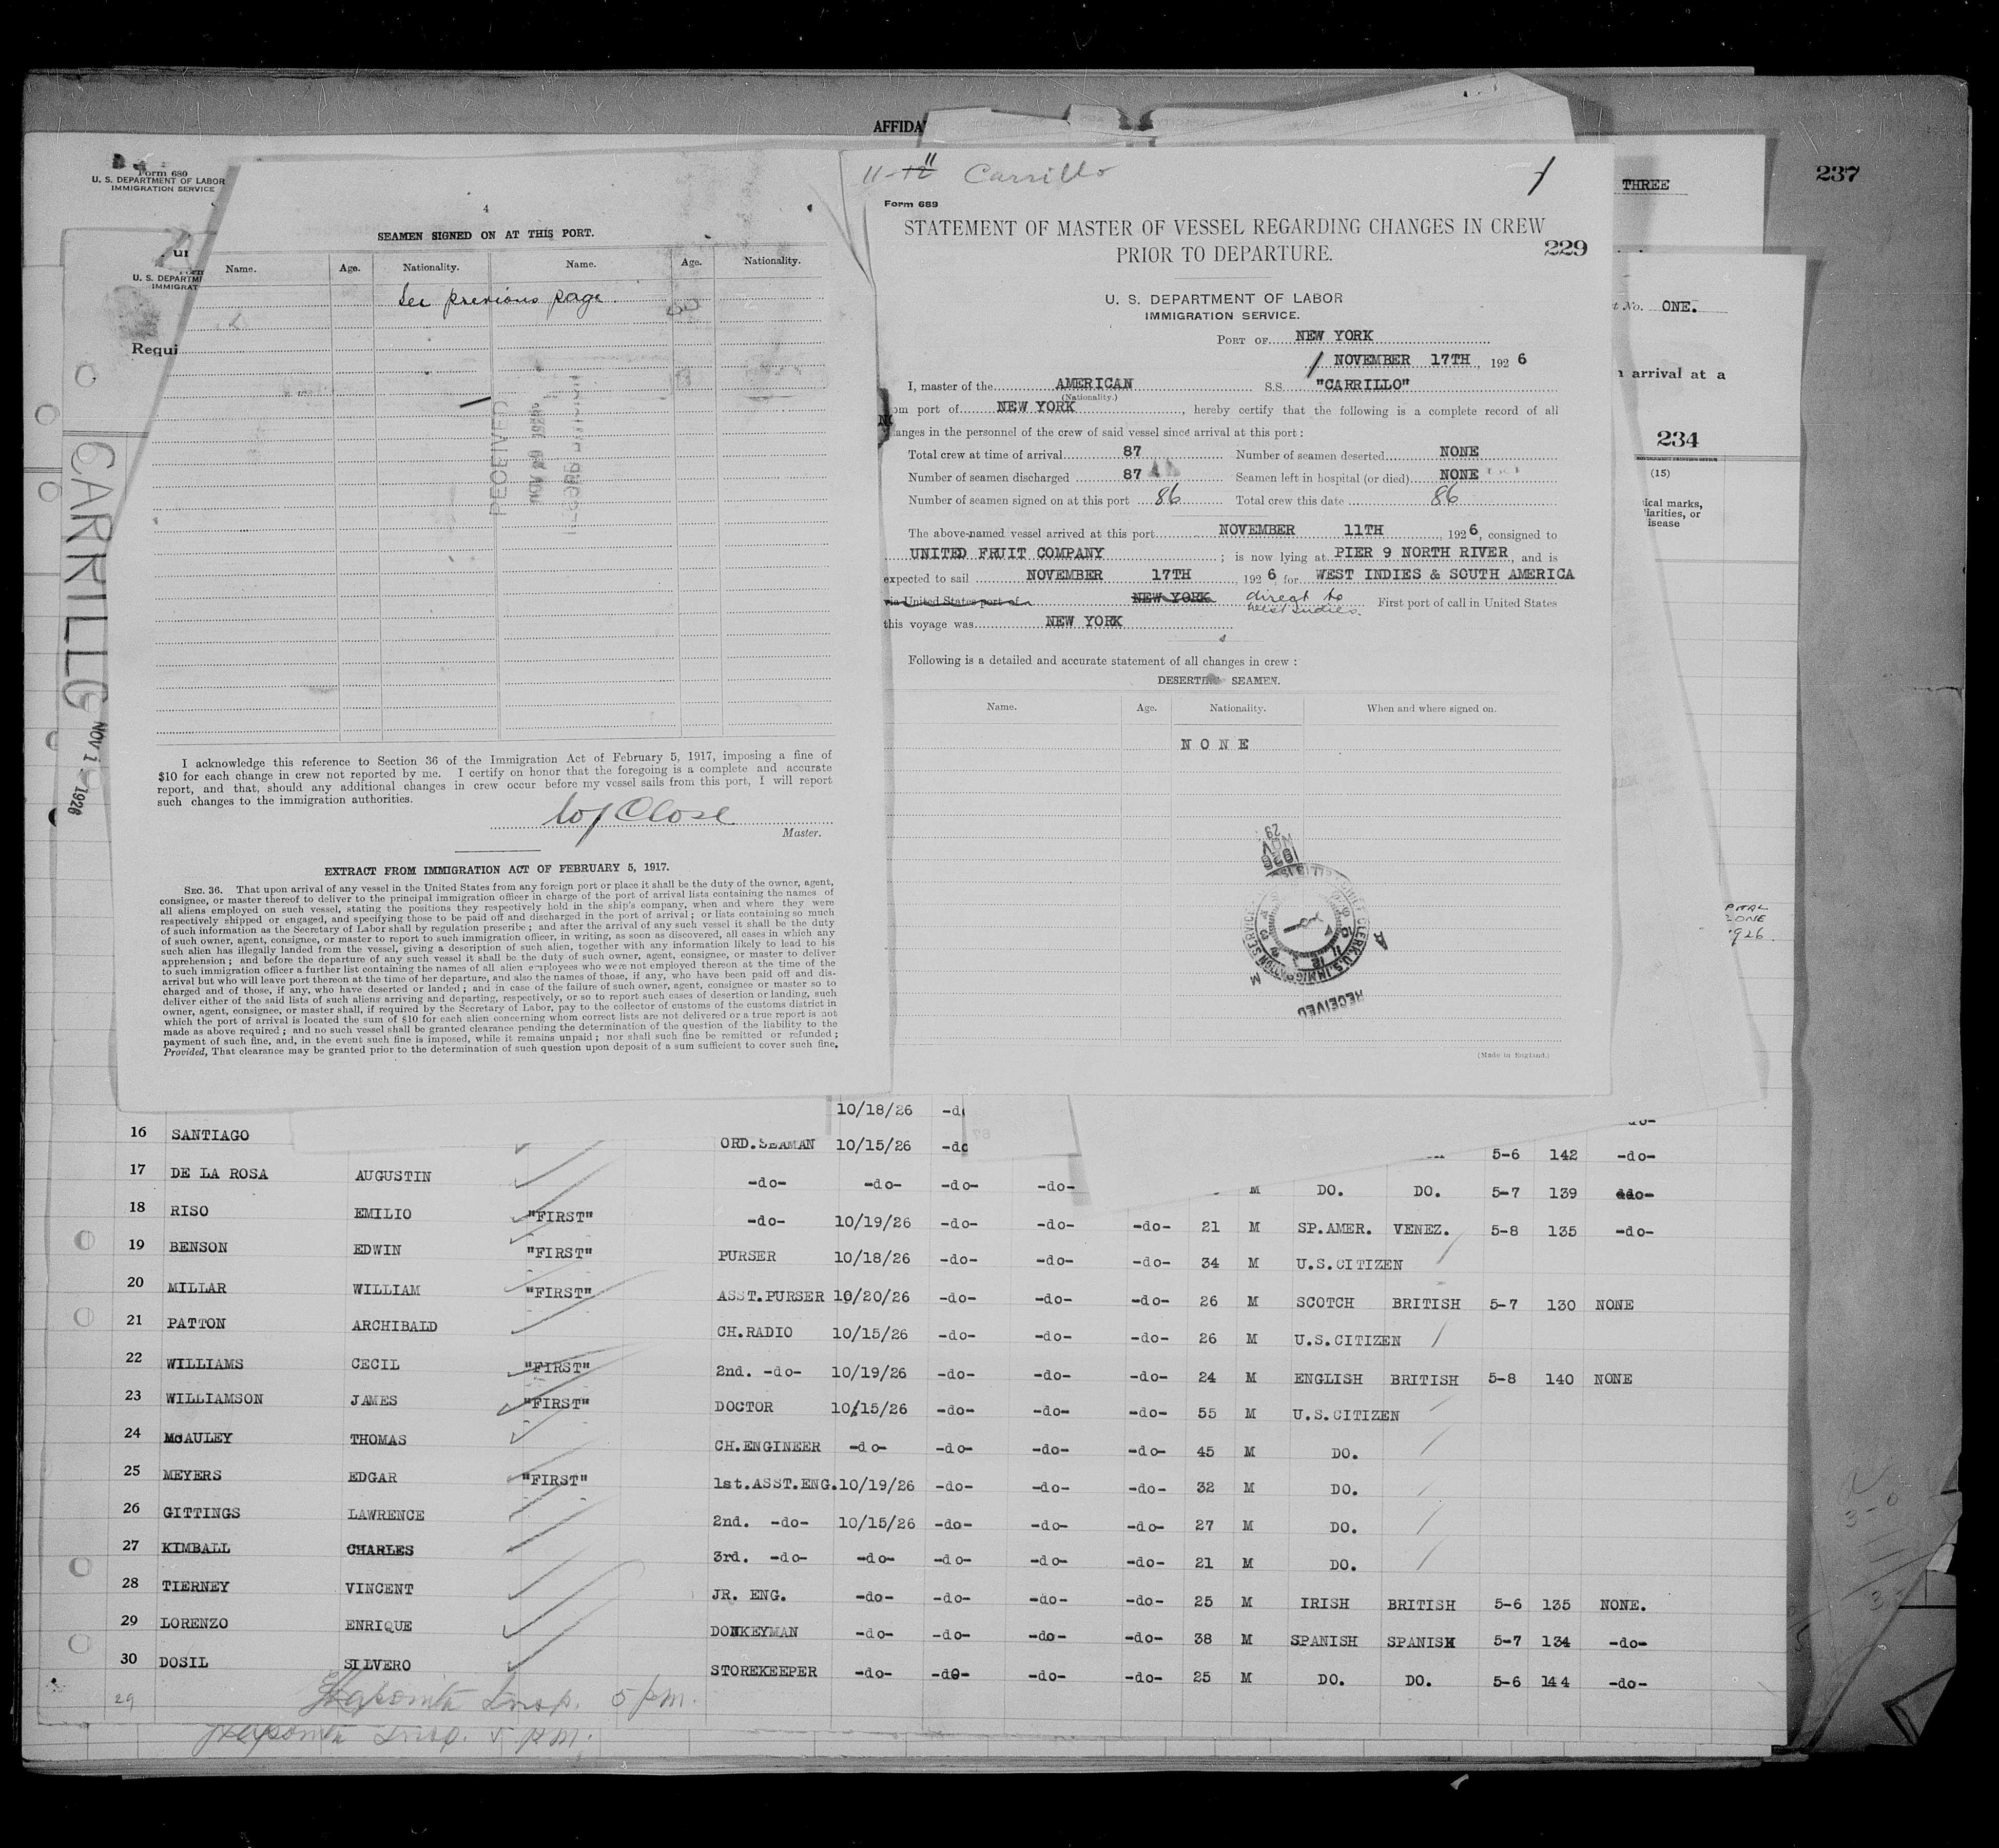 AFFIDA
Form 680
U. S. DEPARTMENT OF LABOR
IMMIGRATION SERVICE
U. S. DEPARTM
IMMIGRAT
Requi
CARRILLO
1926
4
SEAMEN SIGNED ON AT THIS PORT.
Name. Age. Nationality. Name. Age. Nationality.
See previous page.
RECEIVED
I acknowledge this reference to Section 36 of the Immigration Act of February 5, 1917, imposing a fine of
$10 for each change in crew not reported by me. I certify on honor that the foregoing is a complete and accurate
report, and that, should any additional changes in crew occur before my vessel sails from this port, I will report
such changes to the immigration authorities.
Close
Master.
EXTRACT FROM IMMIGRATION ACT OF FEBRUARY 5, 1917.
SEC. 36. That upon arrival of any vessel in the United States from any foreign port or place it shall be the duty of the owner, agent,
consignee, or master thereof to deliver to the principal immigration officer in charge of the port of arrival lists containing the names of
all aliens employed on such vessel, stating the positions they respectively hold in the ship's company, when and where they were
respectively shipped or engaged, and specifying those to be paid off and discharged in the port of arrival; or lists containing so much
of such information as the Secretary of Labor shall by regulation prescribe; and after the arrival of any such vessel it shall be the duty
of such owner, agent, consignee, or master to report to such immigration officer, in writing, as soon as discovered, all cases in which any
such alien has illegally landed from the vessel, giving a description of such alien, together with any information likely to lead to his
apprehension; and before the departure of any such vessel it shall be the duty of such owner, agent, consignee, or master to deliver
to such immigration officer a further list containing the names of all alien employees who were not employed thereon at the time of the
arrival but who will leave port thereon at the time of her departure, and also the names of those, if any, who have been paid off and dis-
charged and of those, if any, who have deserted or landed; and in case of the failure of such owner, agent, consignee or master so to
deliver either of the said lists of such aliens arriving and departing, respectively, or so to report such cases of desertion or landing, such
owner, agent, consignee, or master shall, if required by the Secretary of Labor, pay to the collector of customs of the customs district in
which the port of arrival is located the sum of $10 for each alien concerning whom correct lists are not delivered or a true report is not
made as above required; and no such vessel shall be granted clearance pending the determination of the question of the liability to the
payment of such fine, and, in the event such fine is imposed, while it remains unpaid; nor shall such fine be remitted or refunded;
Provided, That clearance may be granted prior to the determination of such question upon deposit of a sum sufficient to cover such fine,
11-12 11 Carrillo
Form 689
STATEMENT OF MASTER OF VESSEL REGARDING CHANGES IN CREW
PRIOR TO DEPARTURE.
229
U. S. DEPARTMENT OF LABOR
IMMIGRATION SERVICE.
PORT OF NEW YORK
NOVEMBER 17TH, 192 6
I, master of the AMERICAN S.S. "CARRILLO"
(Nationality.)
om port of NEW YORK, hereby certify that the following is a complete record of all
anges in the personnel of the crew of said vessel since arrival at this port:
Total crew at time of arrival 87 Number of seamen deserted NONE
Number of seamen discharged 87 Seamen left in hospital (or died) NONE
Number of seamen signed on at this port 86 Total crew this date 86
The above-named vessel arrived at this port NOVEMBER 11TH, 192 6, consigned to
UNITED FRUIT COMPANY; is now lying at PIER 9 NORTH RIVER, and is
expected to sail NOVEMBER 17TH, 192 6, for WEST INDIES & SOUTH AMERICA
via United States port of NEW YORK direct to West Indies. First port of call in United States
this voyage was NEW YORK
Following is a detailed and accurate statement of all changes in crew:
DESERTING SEAMEN.
Name. Age. Nationality. When and where signed on.
NONE
1926 NOV 29
CLERK, U.S. IMMIGRATION SERVICE
RECEIVED
(Made in England.)
THREE
237
No. ONE.
arrival at a
234
(15)
ical marks,
liarities, or
isease
1926
10/18/26 -do
-do-
16 SANTIAGO ORD.SEAMAN 10/15/26 -do 5-6 142 -do-
17 DE LA ROSA AUGUSTIN -do- -do- -do- -do- M DO. DO. 5-7 139 -do-
18 RISO EMILIO "FIRST" -do- 10/19/26 -do- -do- -do- 21 M SP.AMER. VENEZ. 5-8 135 -do-
19 BENSON EDWIN "FIRST" PURSER 10/18/26 -do- -do- -do- 34 M U.S.CITIZEN
20 MILLAR WILLIAM "FIRST" ASST.PURSER 10/20/26 -do- -do- -do- 26 M SCOTCH BRITISH 5-7 130 NONE
21 PATTON ARCHIBALD CH.RADIO 10/15/26 -do- -do- -do- 26 M U.S.CITIZEN
22 WILLIAMS CECIL "FIRST" 2nd. -do- 10/19/26 -do- -do- -do- 24 M ENGLISH BRITISH 5-8 140 NONE
23 WILLIAMSON JAMES "FIRST" DOCTOR 10/15/26 -do- -do- -do- 55 M U.S.CITIZEN
24 McAULEY THOMAS CH.ENGINEER -do- -do- -do- -do- 45 M DO.
25 MEYERS EDGAR "FIRST" 1st.ASST.ENG. 10/19/26 -do- -do- -do- 32 M DO.
26 GITTINGS LAWRENCE 2nd. -do- 10/15/26 -do- -do- -do- 27 M DO.
27 KIMBALL CHARLES 3rd. -do- -do- -do- -do- -do- 21 M DO.
28 TIERNEY VINCENT JR. ENG. -do- -do- -do- -do- 25 M IRISH BRITISH 5-6 135 NONE.
29 LORENZO ENRIQUE DONKEYMAN -do- -do- -do- -do- 38 M SPANISH SPANISH 5-7 134 -do-
30 DOSIL SILVERO STOREKEEPER -do- -do- -do- -do- 25 M DO. DO. 5-6 144 -do-
29 Insp. 5 p.m.
Insp. 5 P.M.